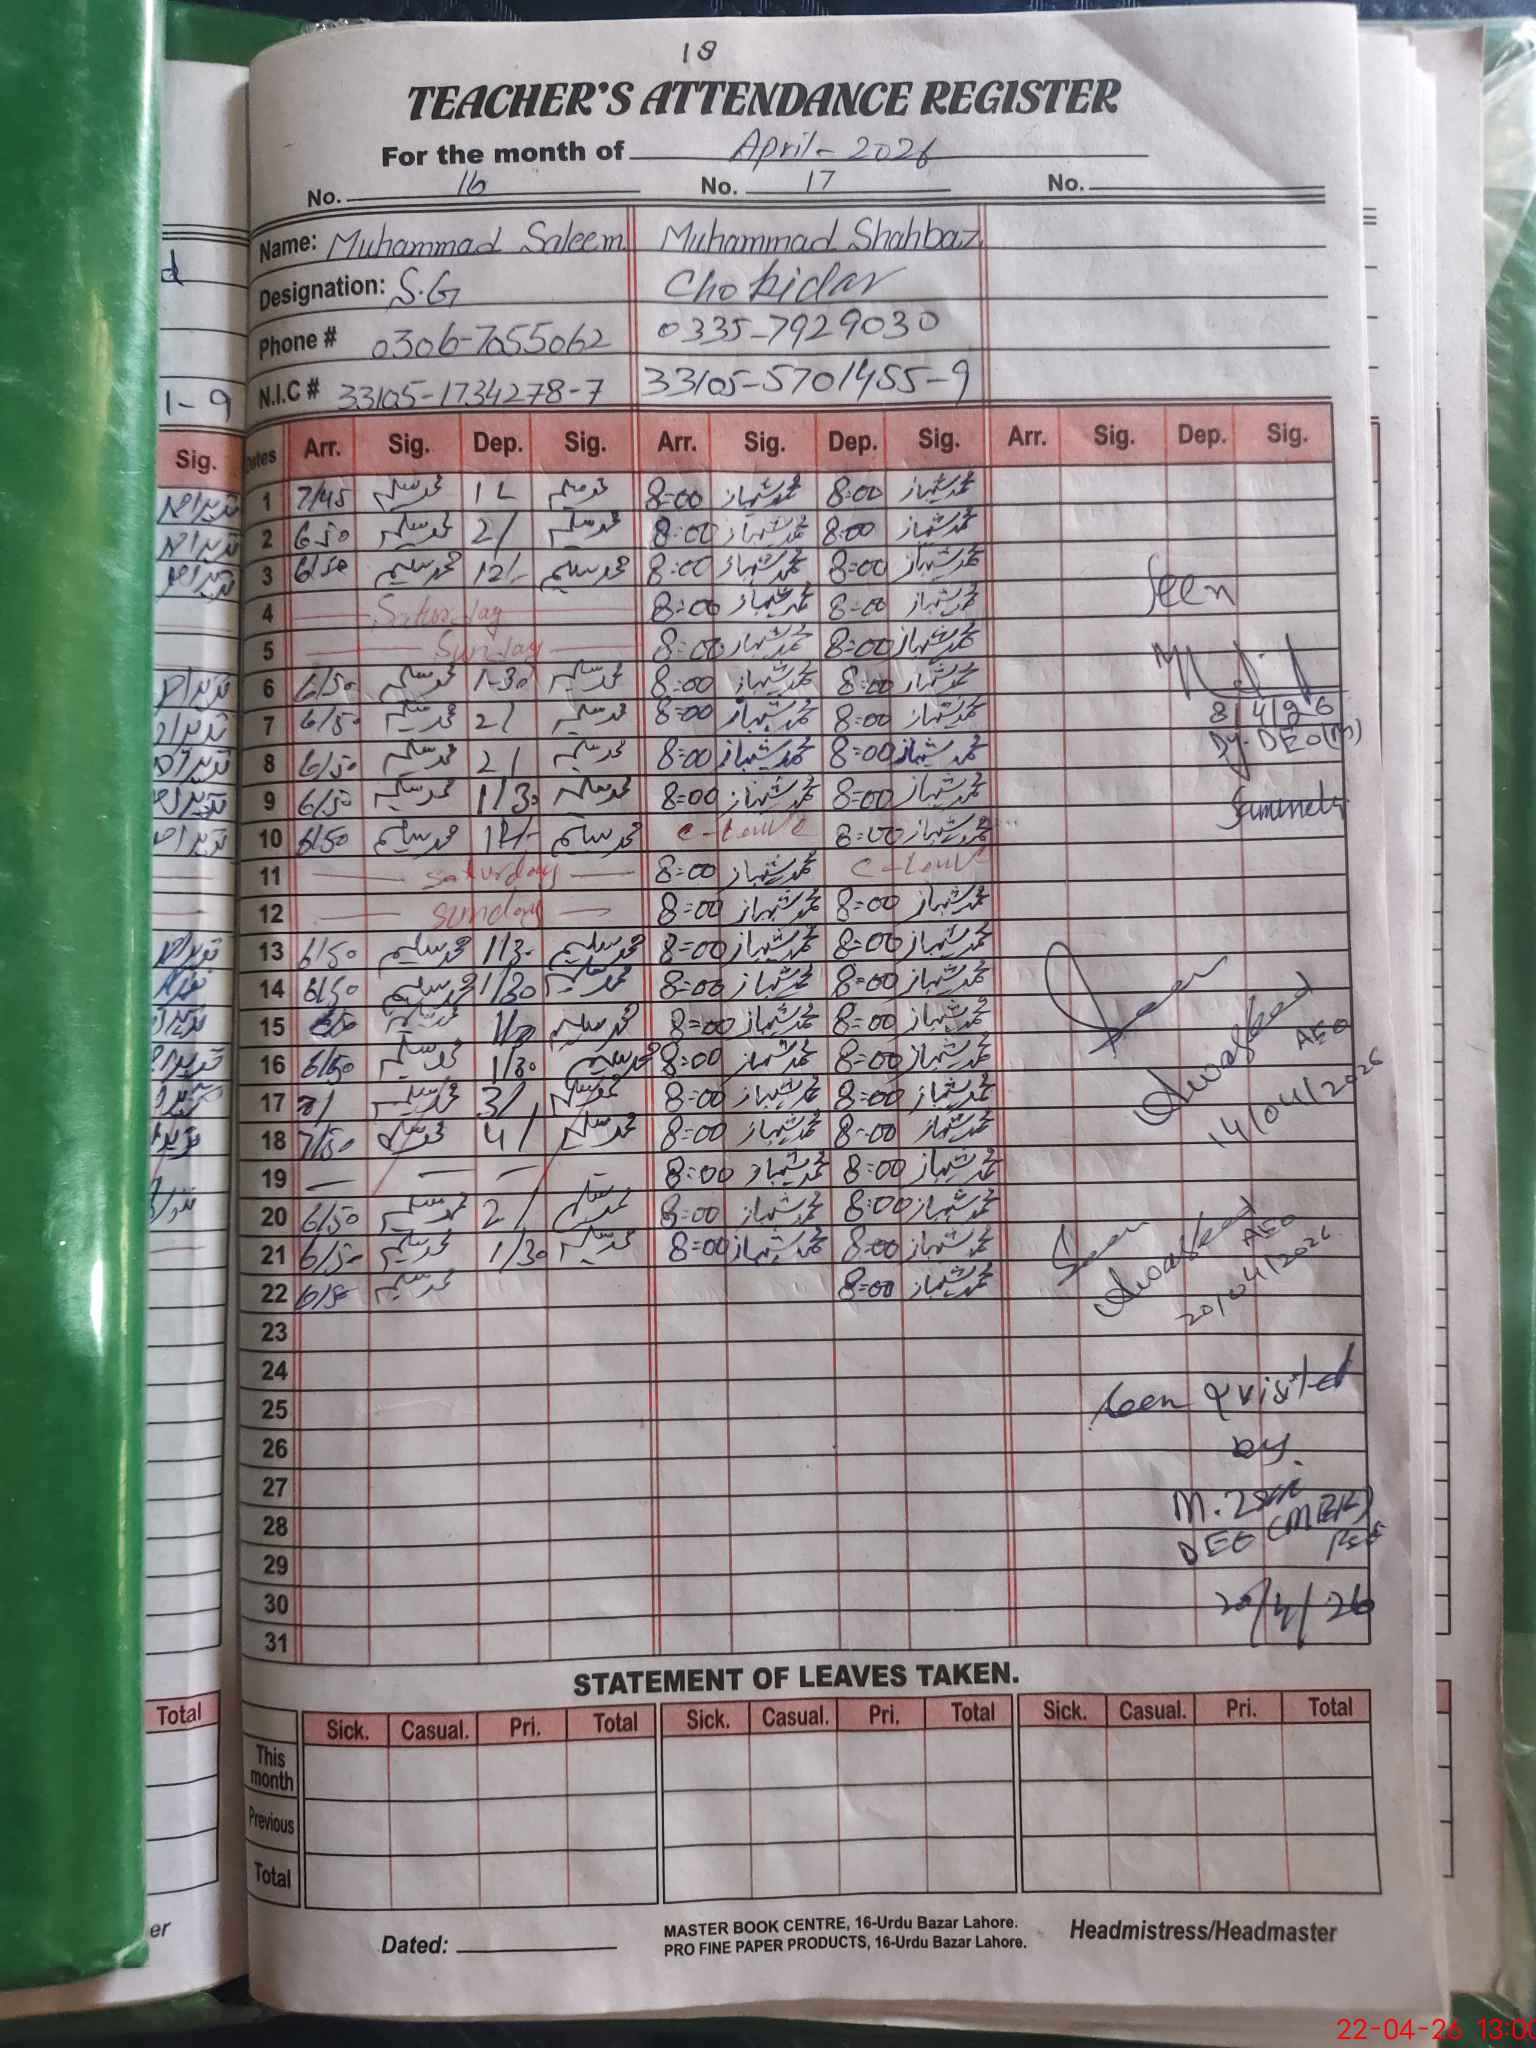 18
TEACHER'S ATTENDANCE REGISTER
For the month of April - 2026
No. 16 No. 17 No.
Name: Muhammad Saleem Muhammad Shahbaz
Designation: S.G Chokidar
Phone # 0306-7055062 0335-7929030
N.I.C # 33105-1734278-7 33105-5701455-9
d
1-9
Sig.
Dates Arr. Sig. Dep. Sig. Arr. Sig. Dep. Sig. Arr. Sig. Dep. Sig.
1 7/45 محمد سلیم محمد سلیم 8:00 محمد شہباز 8:00 محمد شہباز
2 6 50 محمد سلیم 2/ محمد سلیم 8:00 محمد شہباز 8:00 محمد شہباز
3 6/50 محمد سلیم 12/- محمد سلیم 8:00 محمد شہباز 8:00 محمد شہباز
4 Saturday 8:00 محمد شہباز 8:00 محمد شہباز
5 Sunday 8:00 محمد شہباز 8:00 محمد شہباز
6 6/50 محمد سلیم 1-30 محمد سلیم 8:00 محمد شہباز 8:00 محمد شہباز
7 6/50 محمد سلیم 2/ محمد سلیم 8:00 محمد شہباز 8:00 محمد شہباز
8 6/50 محمد سلیم 2/ محمد سلیم 8:00 محمد شہباز 8:00 محمد شہباز
9 6/50 محمد سلیم 1/30 محمد سلیم 8:00 محمد شہباز 8:00 محمد شہباز
10 6/50 محمد سلیم محمد سلیم C-Leave 8:00 محمد شہباز
11 Saturday 8:00 محمد شہباز C-Leave
12 Sunday 8:00 محمد شہباز 8:00 محمد شہباز
13 6/50 محمد سلیم 1/30 محمد سلیم 8:00 محمد شہباز 8:00 محمد شہباز
14 6/50 محمد سلیم 1/30 محمد سلیم 8:00 محمد شہباز 8:00 محمد شہباز
15 محمد سلیم محمد سلیم 8:00 محمد شہباز 8:00 محمد شہباز
16 6/50 محمد سلیم 1/30 محمد سلیم 8:00 محمد شہباز 8:00 محمد شہباز
17 محمد سلیم 3/ محمد سلیم 8:00 محمد شہباز 8:00 محمد شہباز
18 7/50 محمد سلیم 4/ محمد سلیم 8:00 محمد شہباز 8:00 محمد شہباز
19 8:00 محمد شہباز 8:00 محمد شہباز
20 6/50 محمد سلیم 2/ محمد سلیم 8:00 محمد شہباز 8:00 محمد شہباز
21 6/50 محمد سلیم 1/30 محمد سلیم 8:00 محمد شہباز 8:00 محمد شہباز
22 محمد سلیم 8:00 محمد شہباز
23
24
25
26
27
28
29
30
31
Seen
8/4/26
Dy. DEO (M)
Seen
AEO
14/04/2026
Seen
AEO
20/04/2026
Seen & visited
by
DEO (MEE)
STATEMENT OF LEAVES TAKEN.
Total Sick. Casual. Pri. Total Sick. Casual. Pri. Total Sick. Casual. Pri. Total
This month
Previous
Total
er
Dated:
MASTER BOOK CENTRE, 16-Urdu Bazar Lahore.
PRO FINE PAPER PRODUCTS, 16-Urdu Bazar Lahore.
Headmistress/Headmaster
22-04-26 13:00